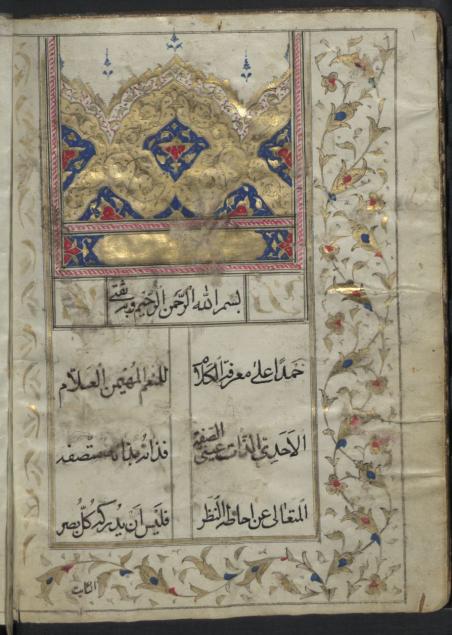 بسم الله الرحمن الرحيم وبه ثقتي
حمدًا على معرفة الكلام للمنعم المهيمن العلام
الاحدي الذات عيني الصفه فذاته بذاته متصفه
المتعالى عن احاطة النظر فليس ان يدركه كل بصر
الثابت